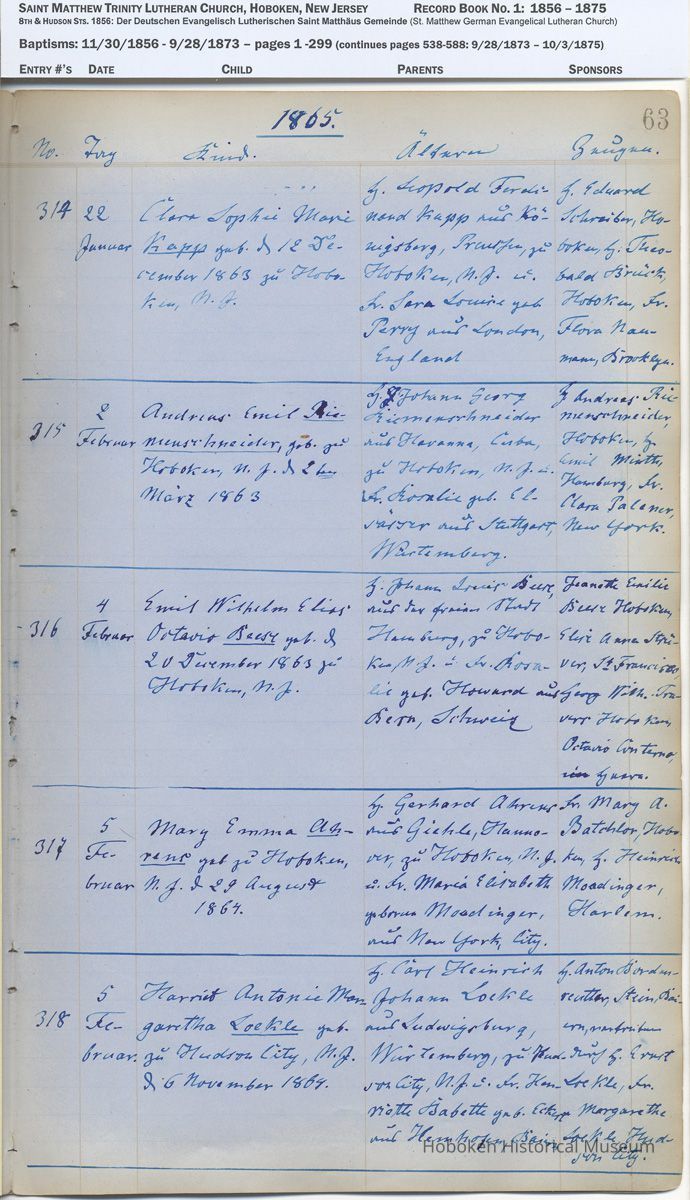 SAINT MATTHEW TRINITY LUTHERAN CHURCH, HOBOKEN, NEW JERSEY RECORD BOOK NO. 1: 1856 – 1875
8TH & HUDSON STS. 1856: Der Deutschen Evangelisch Lutherischen Saint Matthäus Gemeinde (St. Matthew German Evangelical Lutheran Church)
Baptisms: 11/30/1856 - 9/28/1873 – pages 1 -299 (continues pages 538-588: 9/28/1873 – 10/3/1875)
ENTRY #'S DATE CHILD PARENTS SPONSORS
1865.
63
No. Tag Kind. Ältern Zeugen.
314
22
Januar
Clara Sophie Marie
Kapp geb. d 12 De-
cember 1863 zu Hobo-
ken, N. J.
H. Leopold Ferdi-
nand Kapp aus Kö-
nigsberg, Preussen, zu
Hoboken, N. J. u.
Fr. Sara Louise geb
Perry aus London,
England
H. Eduard
Schreiber, Ho-
boken, H. Theo-
bald Bruck,
Hoboken, Fr.
Flora Nau-
mann, Brooklyn.
315
2
Februar
Andreas Emil Rie-
menschneider, geb. zu
Hoboken, N. J. d 2ten
März 1863
H. Johann Georg
Riemenschneider
aus Havanna, Cuba,
zu Hoboken, N. J. u.
Fr. Rosalie geb. El-
sässer aus Stuttgart,
Würtemberg.
H Andreas Rie
menschneider,
Hoboken, H
Emil Mirth,
Hamburg, Fr.
Clara Palener,
New York.
316
4
Februar
Emil Wilhelm Elias
Octavio Beese geb. d
20 December 1863 zu
Hoboken, N. J.
H. Johann Louis Beese,
aus der freien Stadt
Hamburg, zu Hobo-
ken, N. J. u. Fr. Rosa-
lie geb. Howard aus
Bern, Schweiz
Jeanette Emilie
Beese Hoboken,
Elise Anna Strü-
ver, St Francisco,
Georg Wilh. Tra-
vers Hoboken,
Octavio
317
5
Fe-
bruar
Mary Emma Ah-
rens geb zu Hoboken,
N. J. d 29 August
1864.
H. Gerhard Ahrens
aus Giehle, Hanno-
ver, zu Hoboken, N. J.
u. Fr. Maria Elisabeth
geboren Moadinger,
aus New York City.
Fr. Mary A.
Batchlor, Hobo
ken, H. Heinrich
Moadinger,
Harlem.
318
5
Fe-
bruar.
Harriet Antonie Mar-
garetha Loekle geb.
zu Hudson City, N. J.
d 6 November 1864.
H. Carl Heinrich
Johann Loekle
aus Ludwigsburg,
Würtemberg, zu Hud-
son City, N. J. u. Fr. Hen-
riette Babette geb. Eckert
aus Hemhofen Baiern
H. Anton Borden-
reuther, Stein, Bai-
ern, vertreten
durch H. Ernst
Loekle, Fr.
Margarethe
Loekle Hud-
son City.
Hoboken Historical Museum